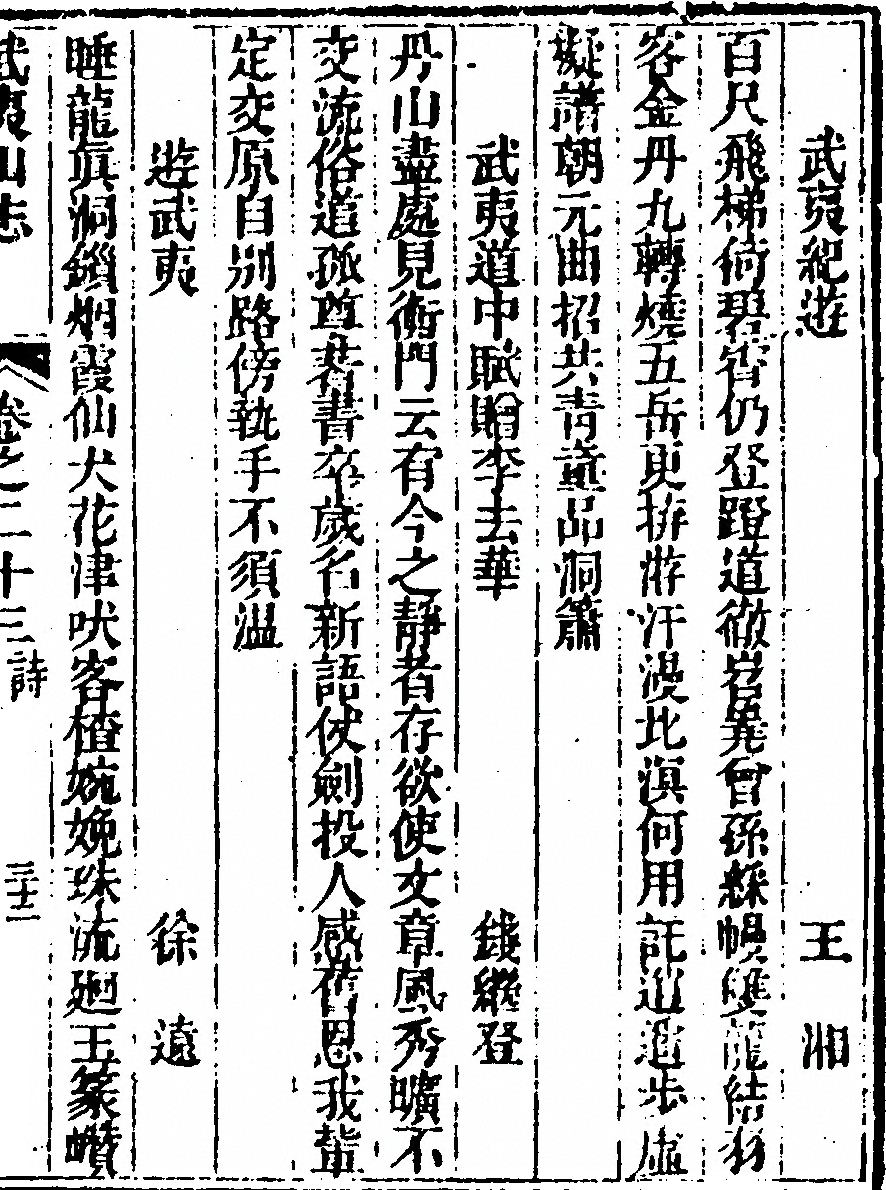 武夷紀遊 王湘
百尺飛梯倚碧霄仍登蹬道徹岩嶤曾孫綵幔雙龍結羽
客金丹九轉燒五岳更拚游汗漫北溟何用託逍遥步虛
擬譜朝元曲招共青童品洞簫
武夷道中賦贈李去華 錢繼登
丹山盡處見衡門云有今之靜者存欲使文章風秀曠不
交流俗道孤尊著書卒歲名新語仗劍投人感舊恩我輩
定交原自别路傍執手不須温
遊武夷 徐遠
睡龍真洞鎖烟霞仙犬花津吠客楂婉娩珠流廻玉篆巑
武夷山志 卷之二十三 詩 三十二